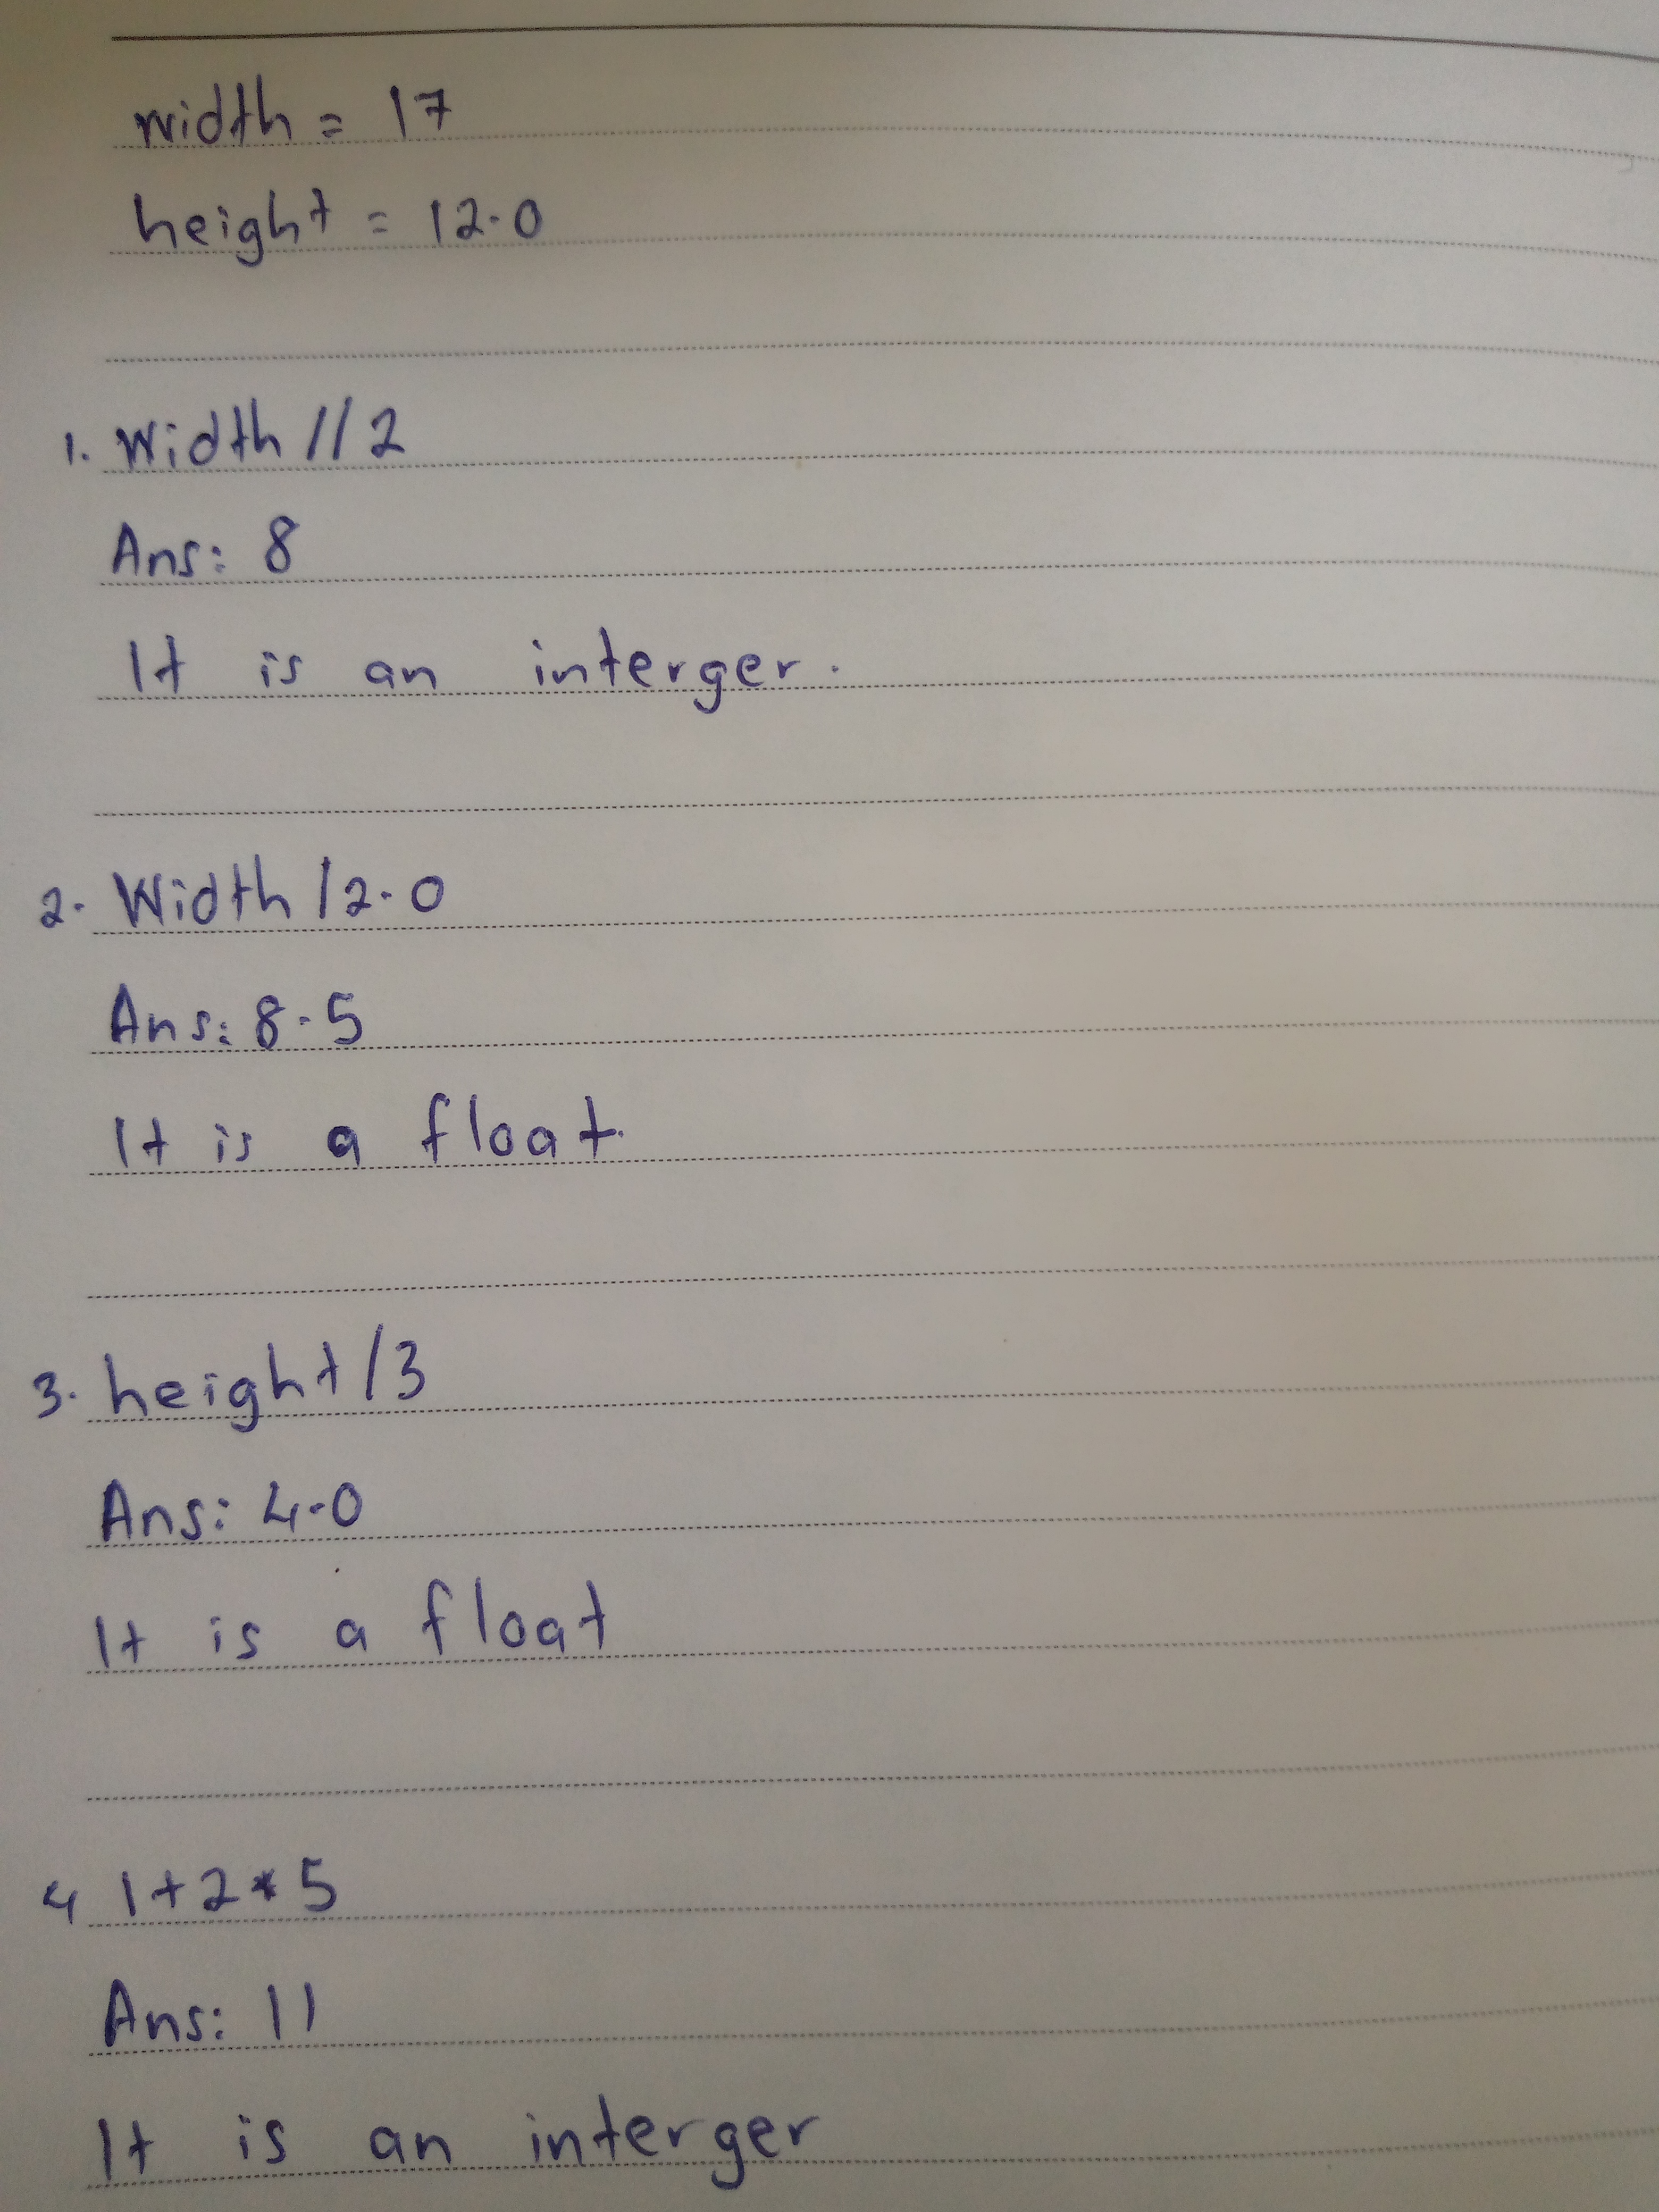 width = 17
height = 12.0
1. Width // 2
Ans: 8
It is an interger.
2. Width / 2.0
Ans: 8.5
It is a float.
3. height / 3
Ans: 4.0
It is a float
4 1+2*5
Ans: 11
It is an interger